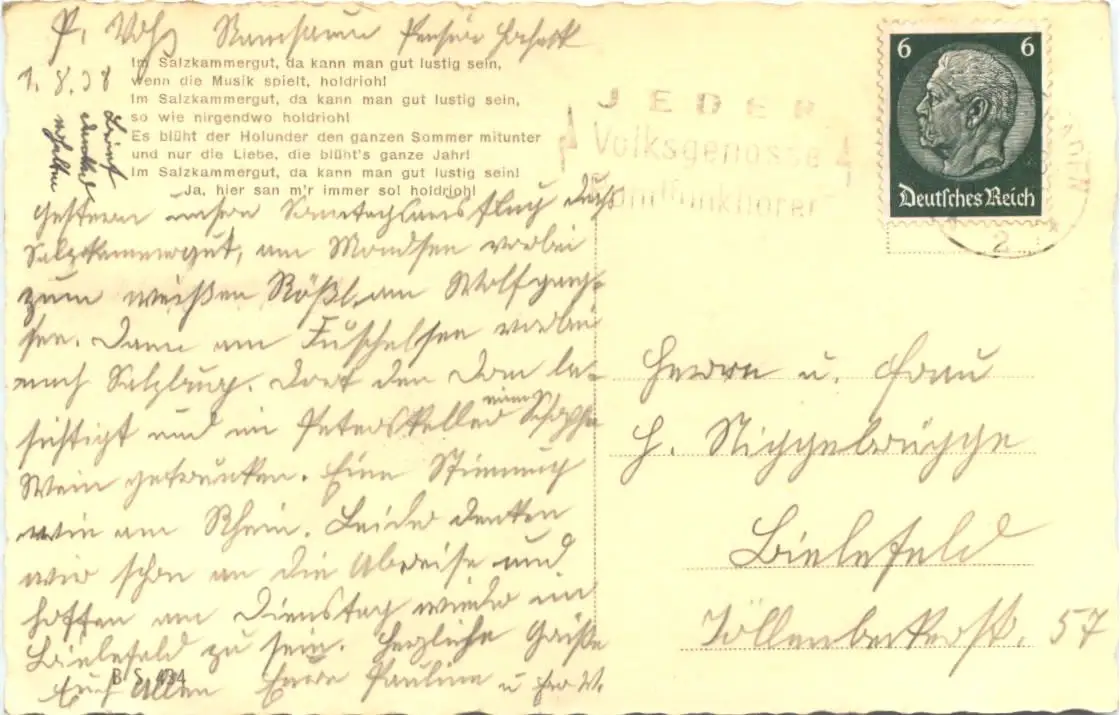 P. Voß Ramsau Pension
1.8.38
Im Salzkammergut, da kann man gut lustig sein,
wenn die Musik spielt, holdrioh!
Im Salzkammergut, da kann man gut lustig sein,
so wie nirgendwo holdrioh!
Es blüht der Holunder den ganzen Sommer mitunter
und nur die Liebe, die blüht's ganze Jahr!
Im Salzkammergut, da kann man gut lustig sein!
Ja, hier san m'r immer so! holdrioh!
Brief
dankend
erhalten
Gestern unsern Sonntagsausflug durchs
Salzkammergut, am Mondsee vorbei
zum weißen Rößl am Wolfgang-
see. Dann am Fuschelsee vorbei
nach Salzburg. Dort den Dom be-
sichtigt und im Peterskeller einen Schoppen
Wein getrunken. Eine Stimmung
wie am Rhein. Leider denken
wir schon an die Abreise und
hoffen am Dienstag wieder in
Bielefeld zu sein. Herzliche Grüße
Euch Allen Eure Pauline u
B S 434
JEDER
Volksgenosse
Rundfunkhörer
6 6
Deutsches Reich
2
Herrn u. Frau
H. Niggebrügge
Bielefeld
Jöllenbeckerstr. 57